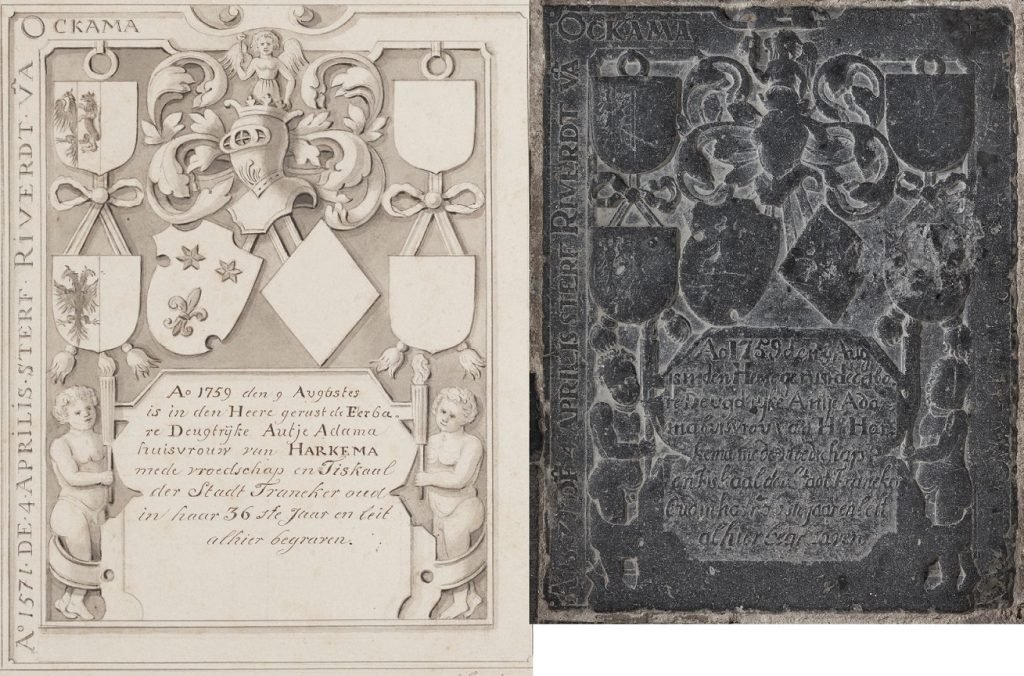 OCKAMA
Aº 1571. DE. 4. APRILIS. STERF. RIVERDT. VÃ
Aº 1759 den 9 Avgustes
is in den Heere gerust de Eerba-
re Deugtrijke Autje Adama
huisvrouw van HARKEMA
mede vroedschap en Fiskaal
der Stadt Franeker oud
in haar 36 ste Jaar en leit
alhier begraven.
OCKAMA
DE 4 APRILIS STERF RIVERDT VÃ
Aº 1759 den 9 Aug
is in den Heere gerust de Eerba
re Deugdrijke Antje Ada
ma huisvrouw van H: Har
kema mede vroedschap
en Fiskaal der Stadt Franeker
Oud in haar jaar en leit
alhier